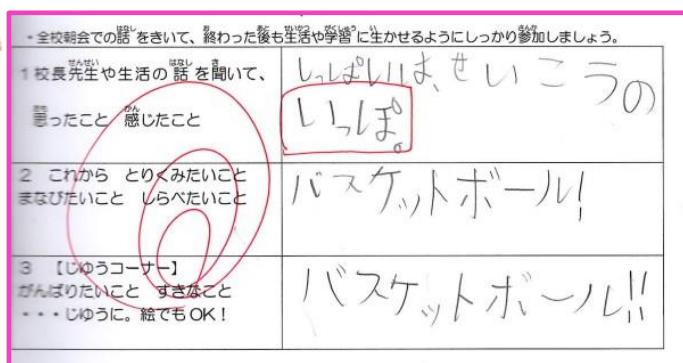 ・全校朝会での話をきいて、終わった後も生活や学習に生かせるようにしっかり参加しましょう。
1 校長先生や生活の話を聞いて、
思ったこと 感じたこと
しっぱいは、せいこうの
いっぽ。
2 これから とりくみたいこと
まなびたいこと しらべたいこと
バスケットボール!
3 【じゆうコーナー】
がんばりたいこと すきなこと
・・・じゆうに。絵でもOK!
バスケットボール!!